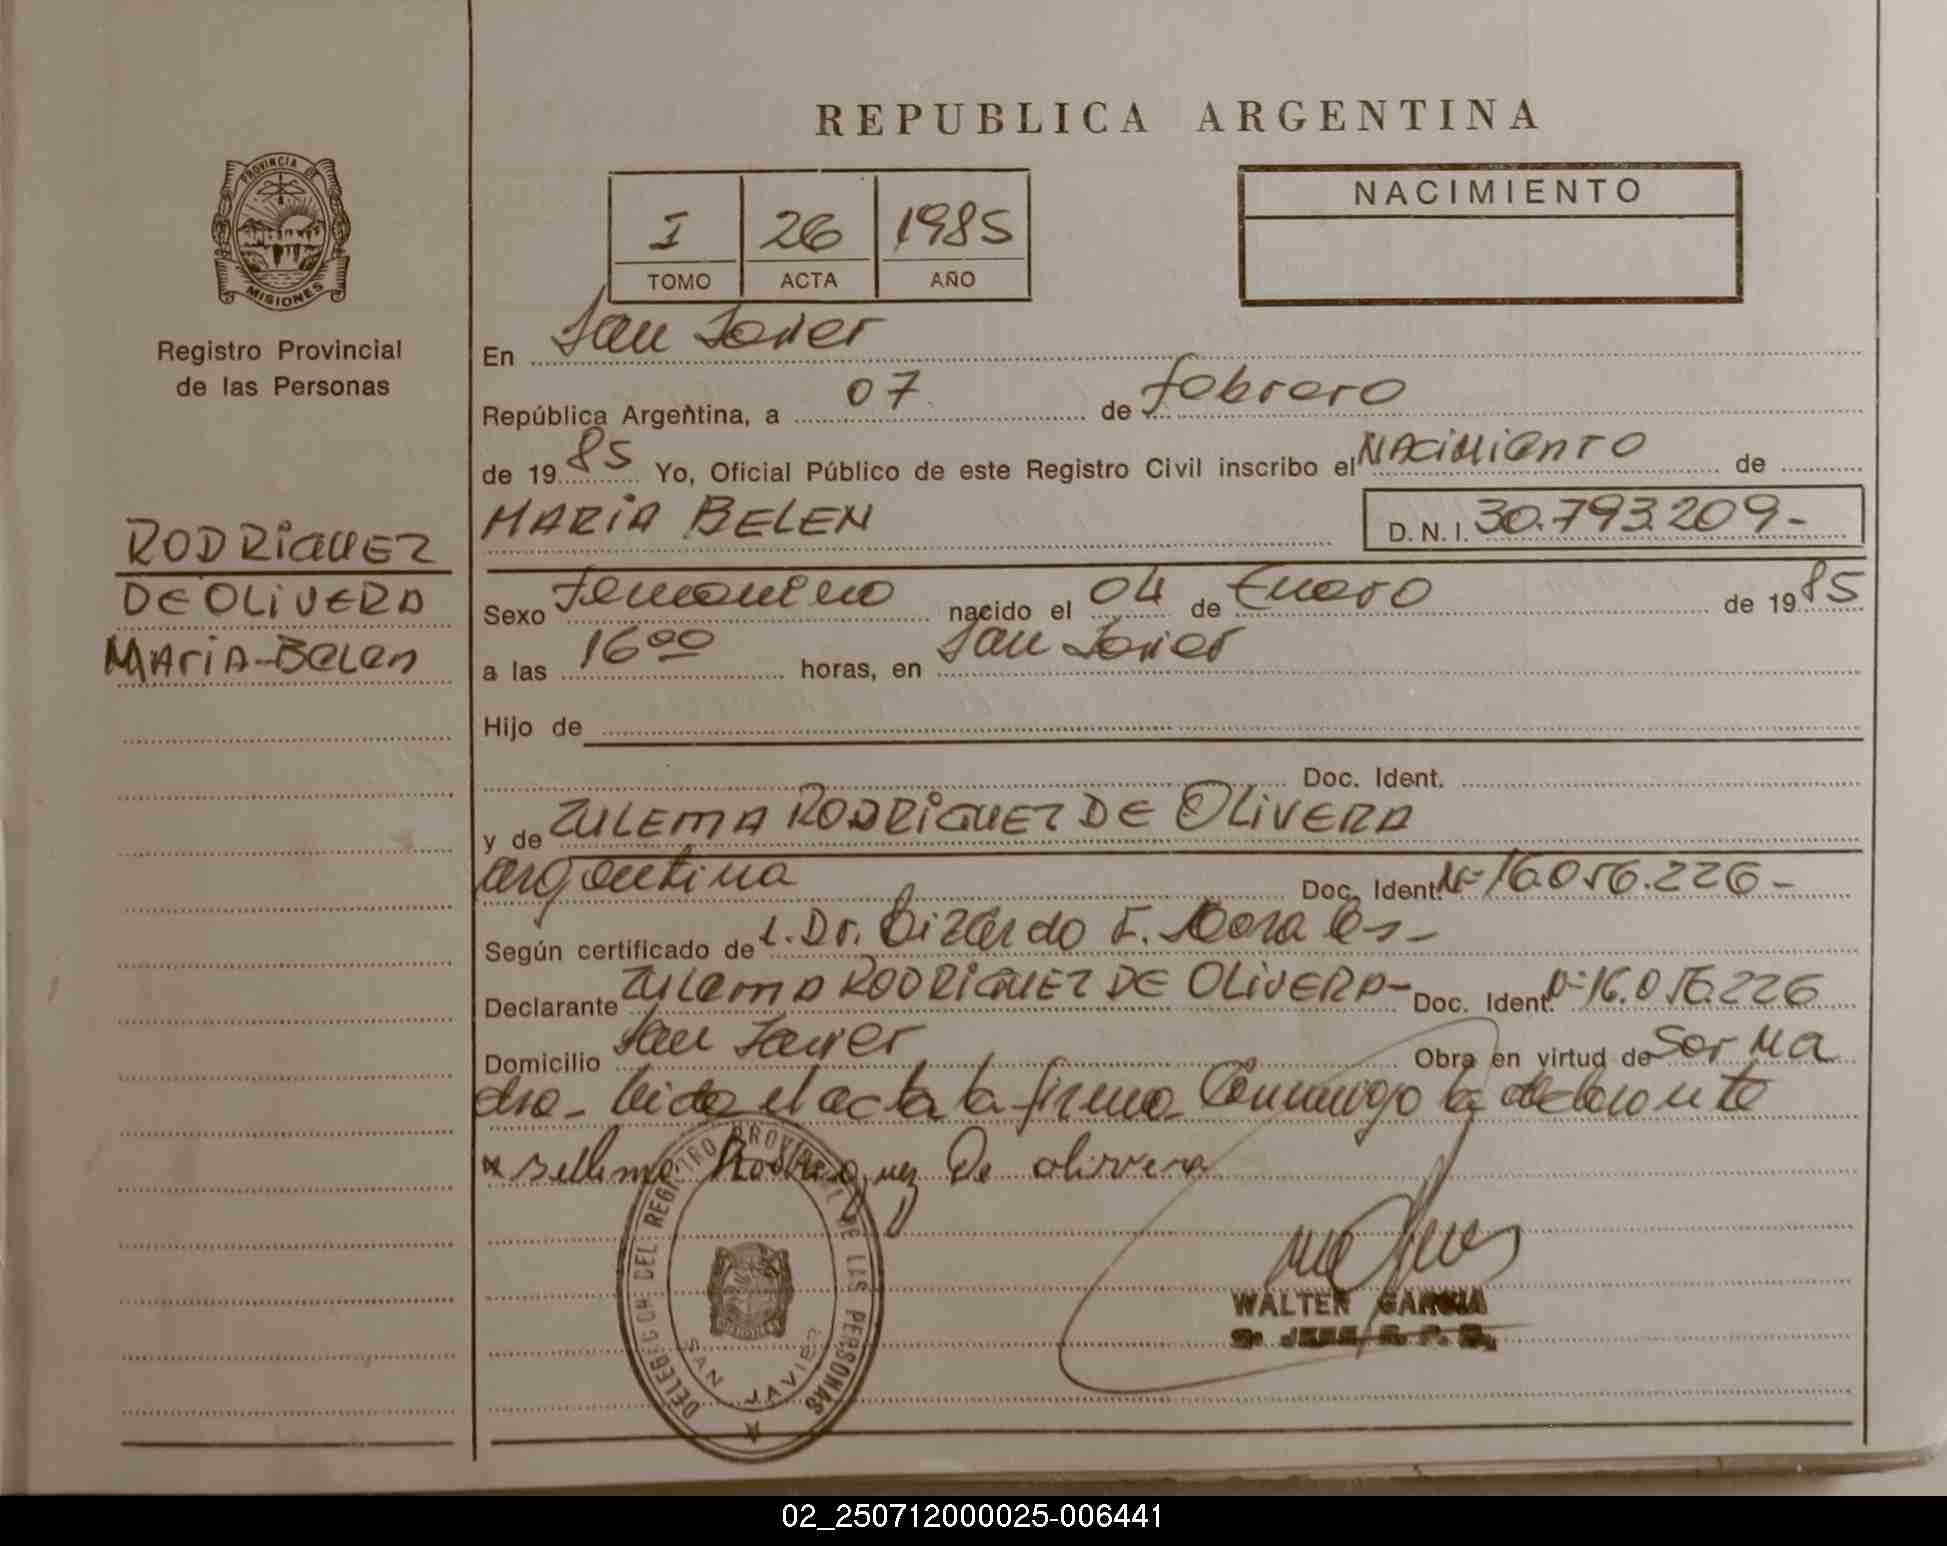 REPUBLICA ARGENTINA
PROVINCIA DE
MISIONES
Registro Provincial
de las Personas
I 26 1985
TOMO ACTA AÑO
NACIMIENTO
En San Javier
República Argentina, a 07 de febrero
de 1985 Yo, Oficial Público de este Registro Civil inscribo el NACIMIENTO de
MARIA BELEN D.N.I. 30.793.209-
RODRIGUEZ
DE OLIVERA
MARIA-BELEN
Sexo Femenino nacido el 04 de Enero de 1985
a las 16 00 horas, en San Javier
Hijo de
Doc. Ident.
y de ZULEMA RODRIGUEZ DE OLIVERA
argentina Doc. Ident. Nº 16.056.226-
Según certificado de Dr. Lizardo F. Morales-
Declarante ZULEMA RODRIGUEZ DE OLIVERA- Doc. Ident. Nº 16.056.226
Domicilio San Javier Obra en virtud de Ser Ma
dre- leida el acta la firma Conmigo la declarante
Rodriguez De olivera
DELEGACION DEL REGISTRO PROVINCIAL DE LAS PERSONAS
MISIONES
SAN JAVIER
WALTER GARCIA
02_250712000025-006441